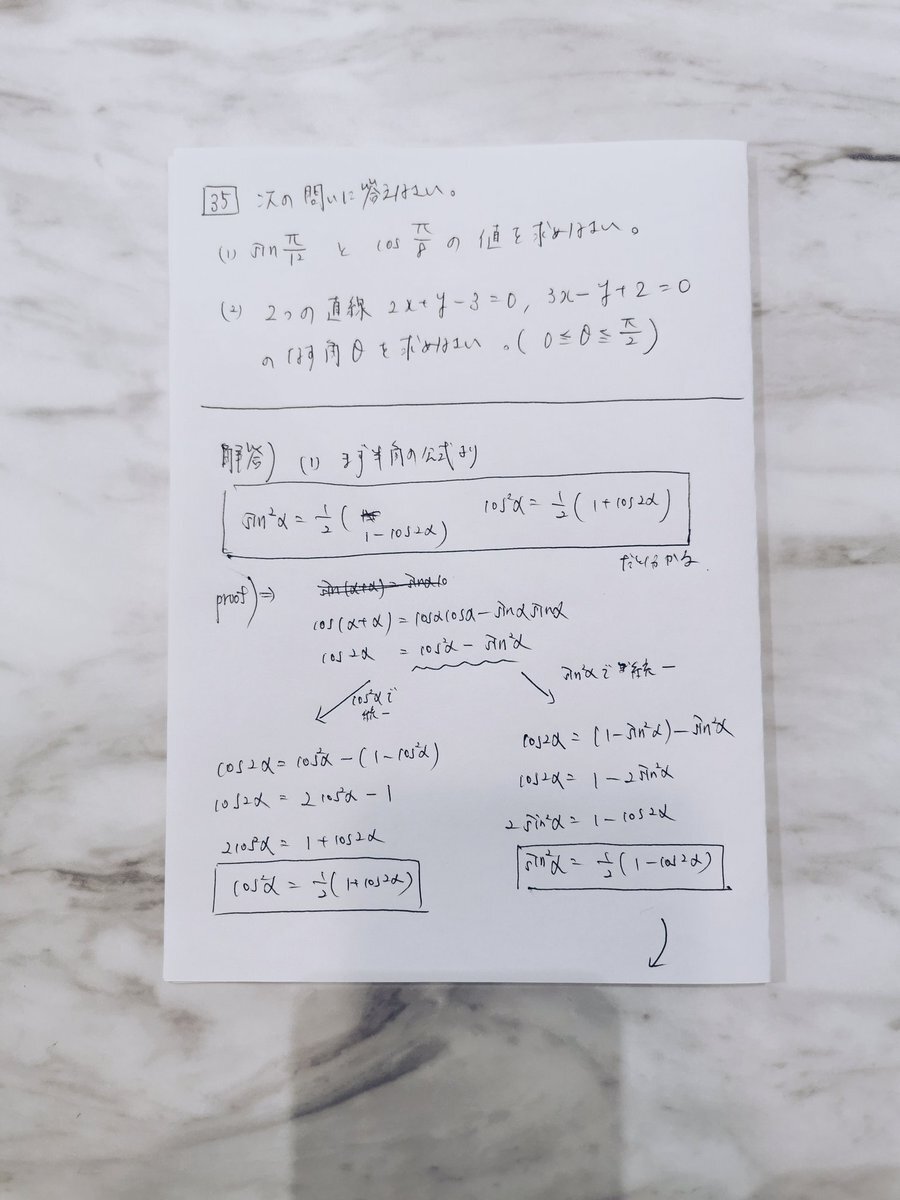 35 次の問いに答えなさい。
(1) sin π/12 と cos π/8 の値を求めなさい。
(2) 2つの直線 2x+y-3=0, 3x-y+2=0
のなす角θを求めなさい。(0≦θ≦π/2)
解答) (1) まず半角の公式より
sin²α = 1/2 (1-cos2α) cos²α = 1/2 (1+cos2α)
proof) ⇒
cos(α+α) = cosαcosα - sinαsinα
cos2α = cos²α - sin²α
cos²αで統一
sin²αで統一
cos2α = cos²α - (1-cos²α)
cos2α = 2cos²α - 1
2cos²α = 1+cos2α
cos²α = 1/2 (1+cos2α)
cos2α = (1-sin²α) - sin²α
cos2α = 1-2sin²α
2sin²α = 1-cos2α
sin²α = 1/2 (1-cos2α)